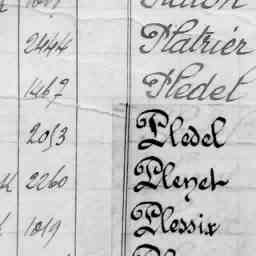 2444 Platrier
1467 Pledel
2093 Pledel
2260 Pleyet
1019 Plessix